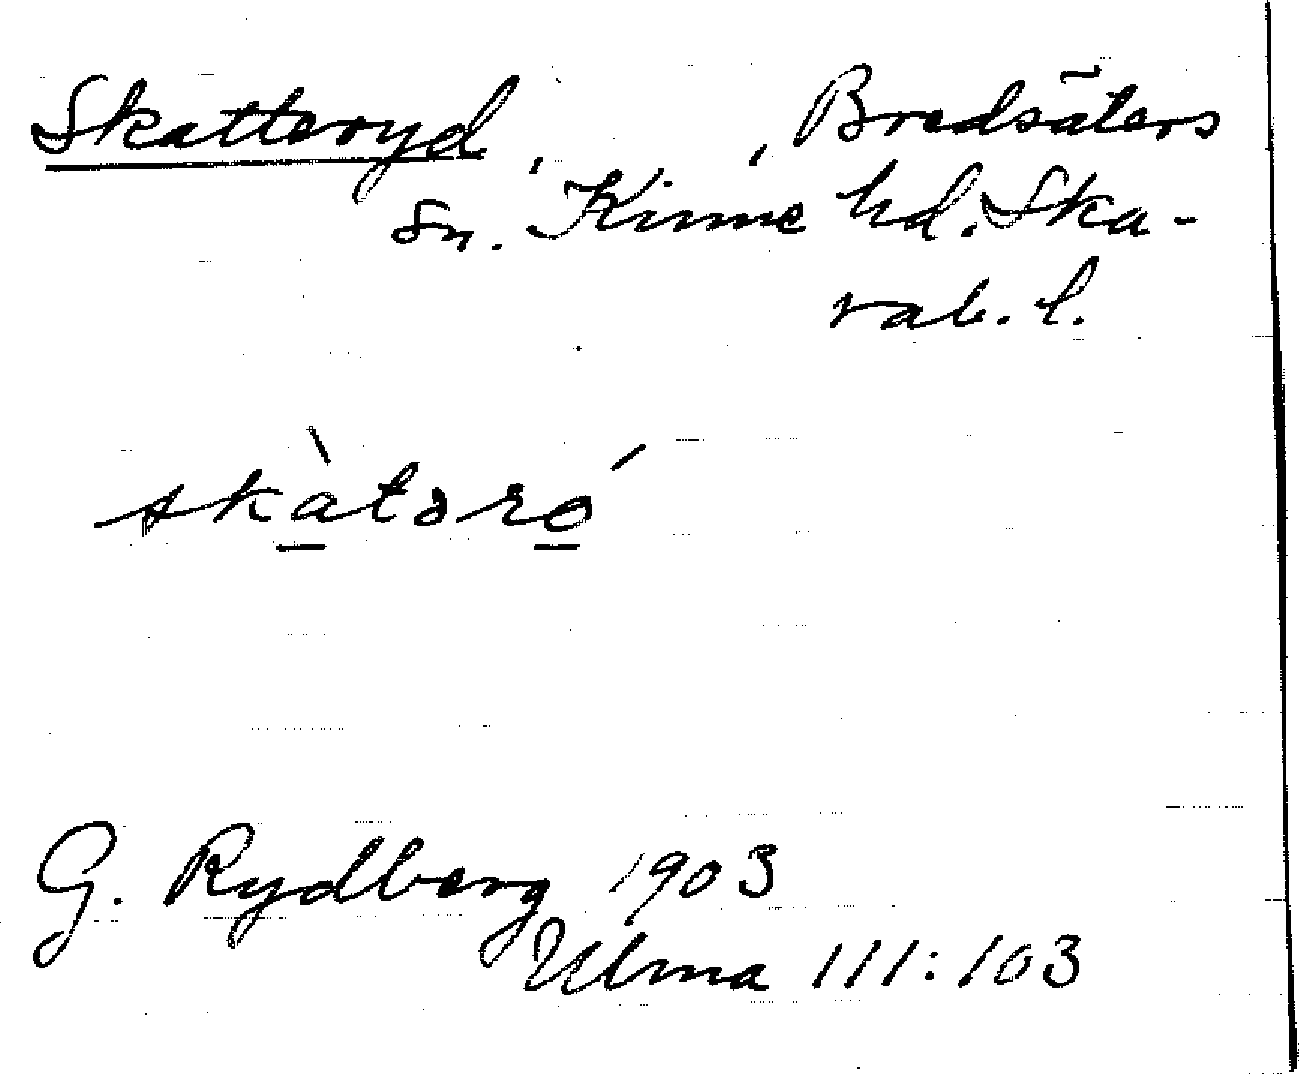 Skatteryd, , Bredsäters
sn. Kinne hd. Ska-
rab. l.
skàtəró
G. Rydberg 1903
Ulma 111:103